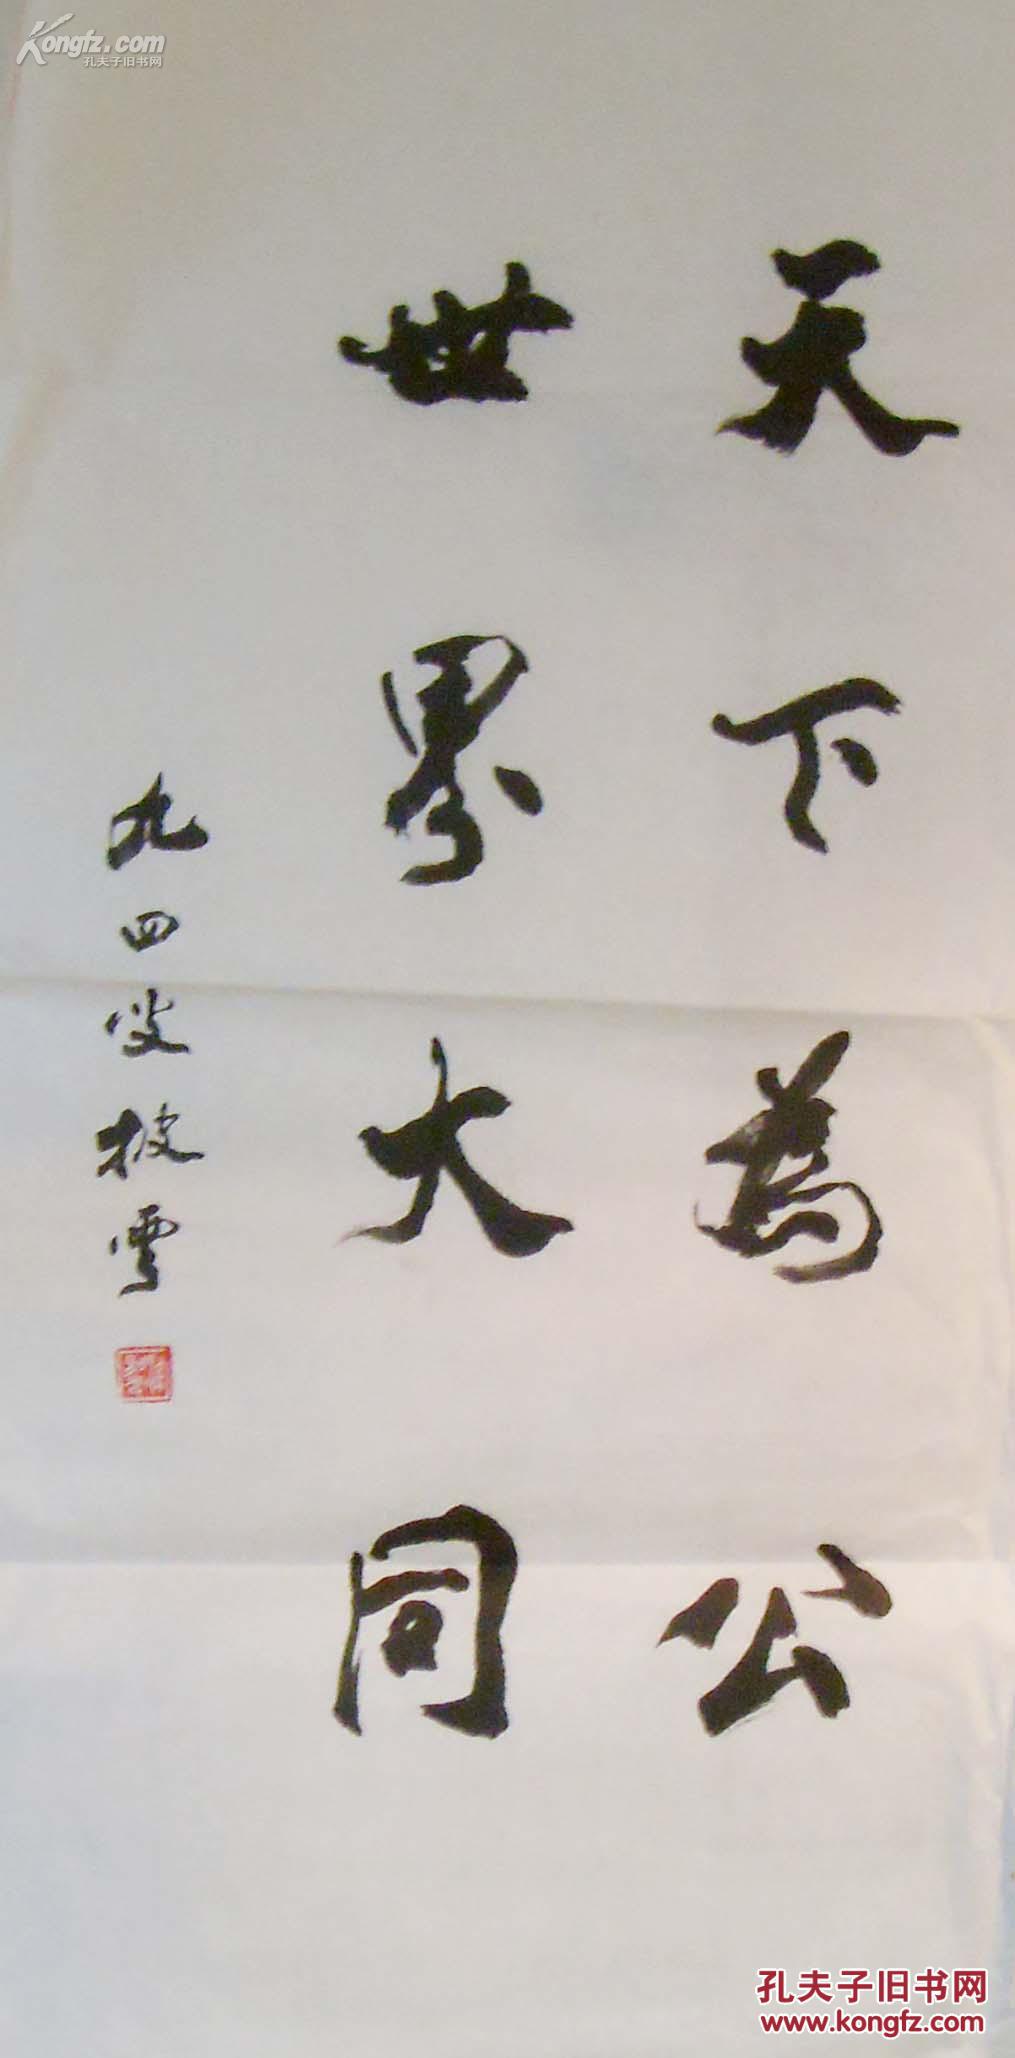 天下為公
世界大同
九四叟披雲
Kongfz.com
孔夫子旧书网
孔夫子旧书网
www.kongfz.com